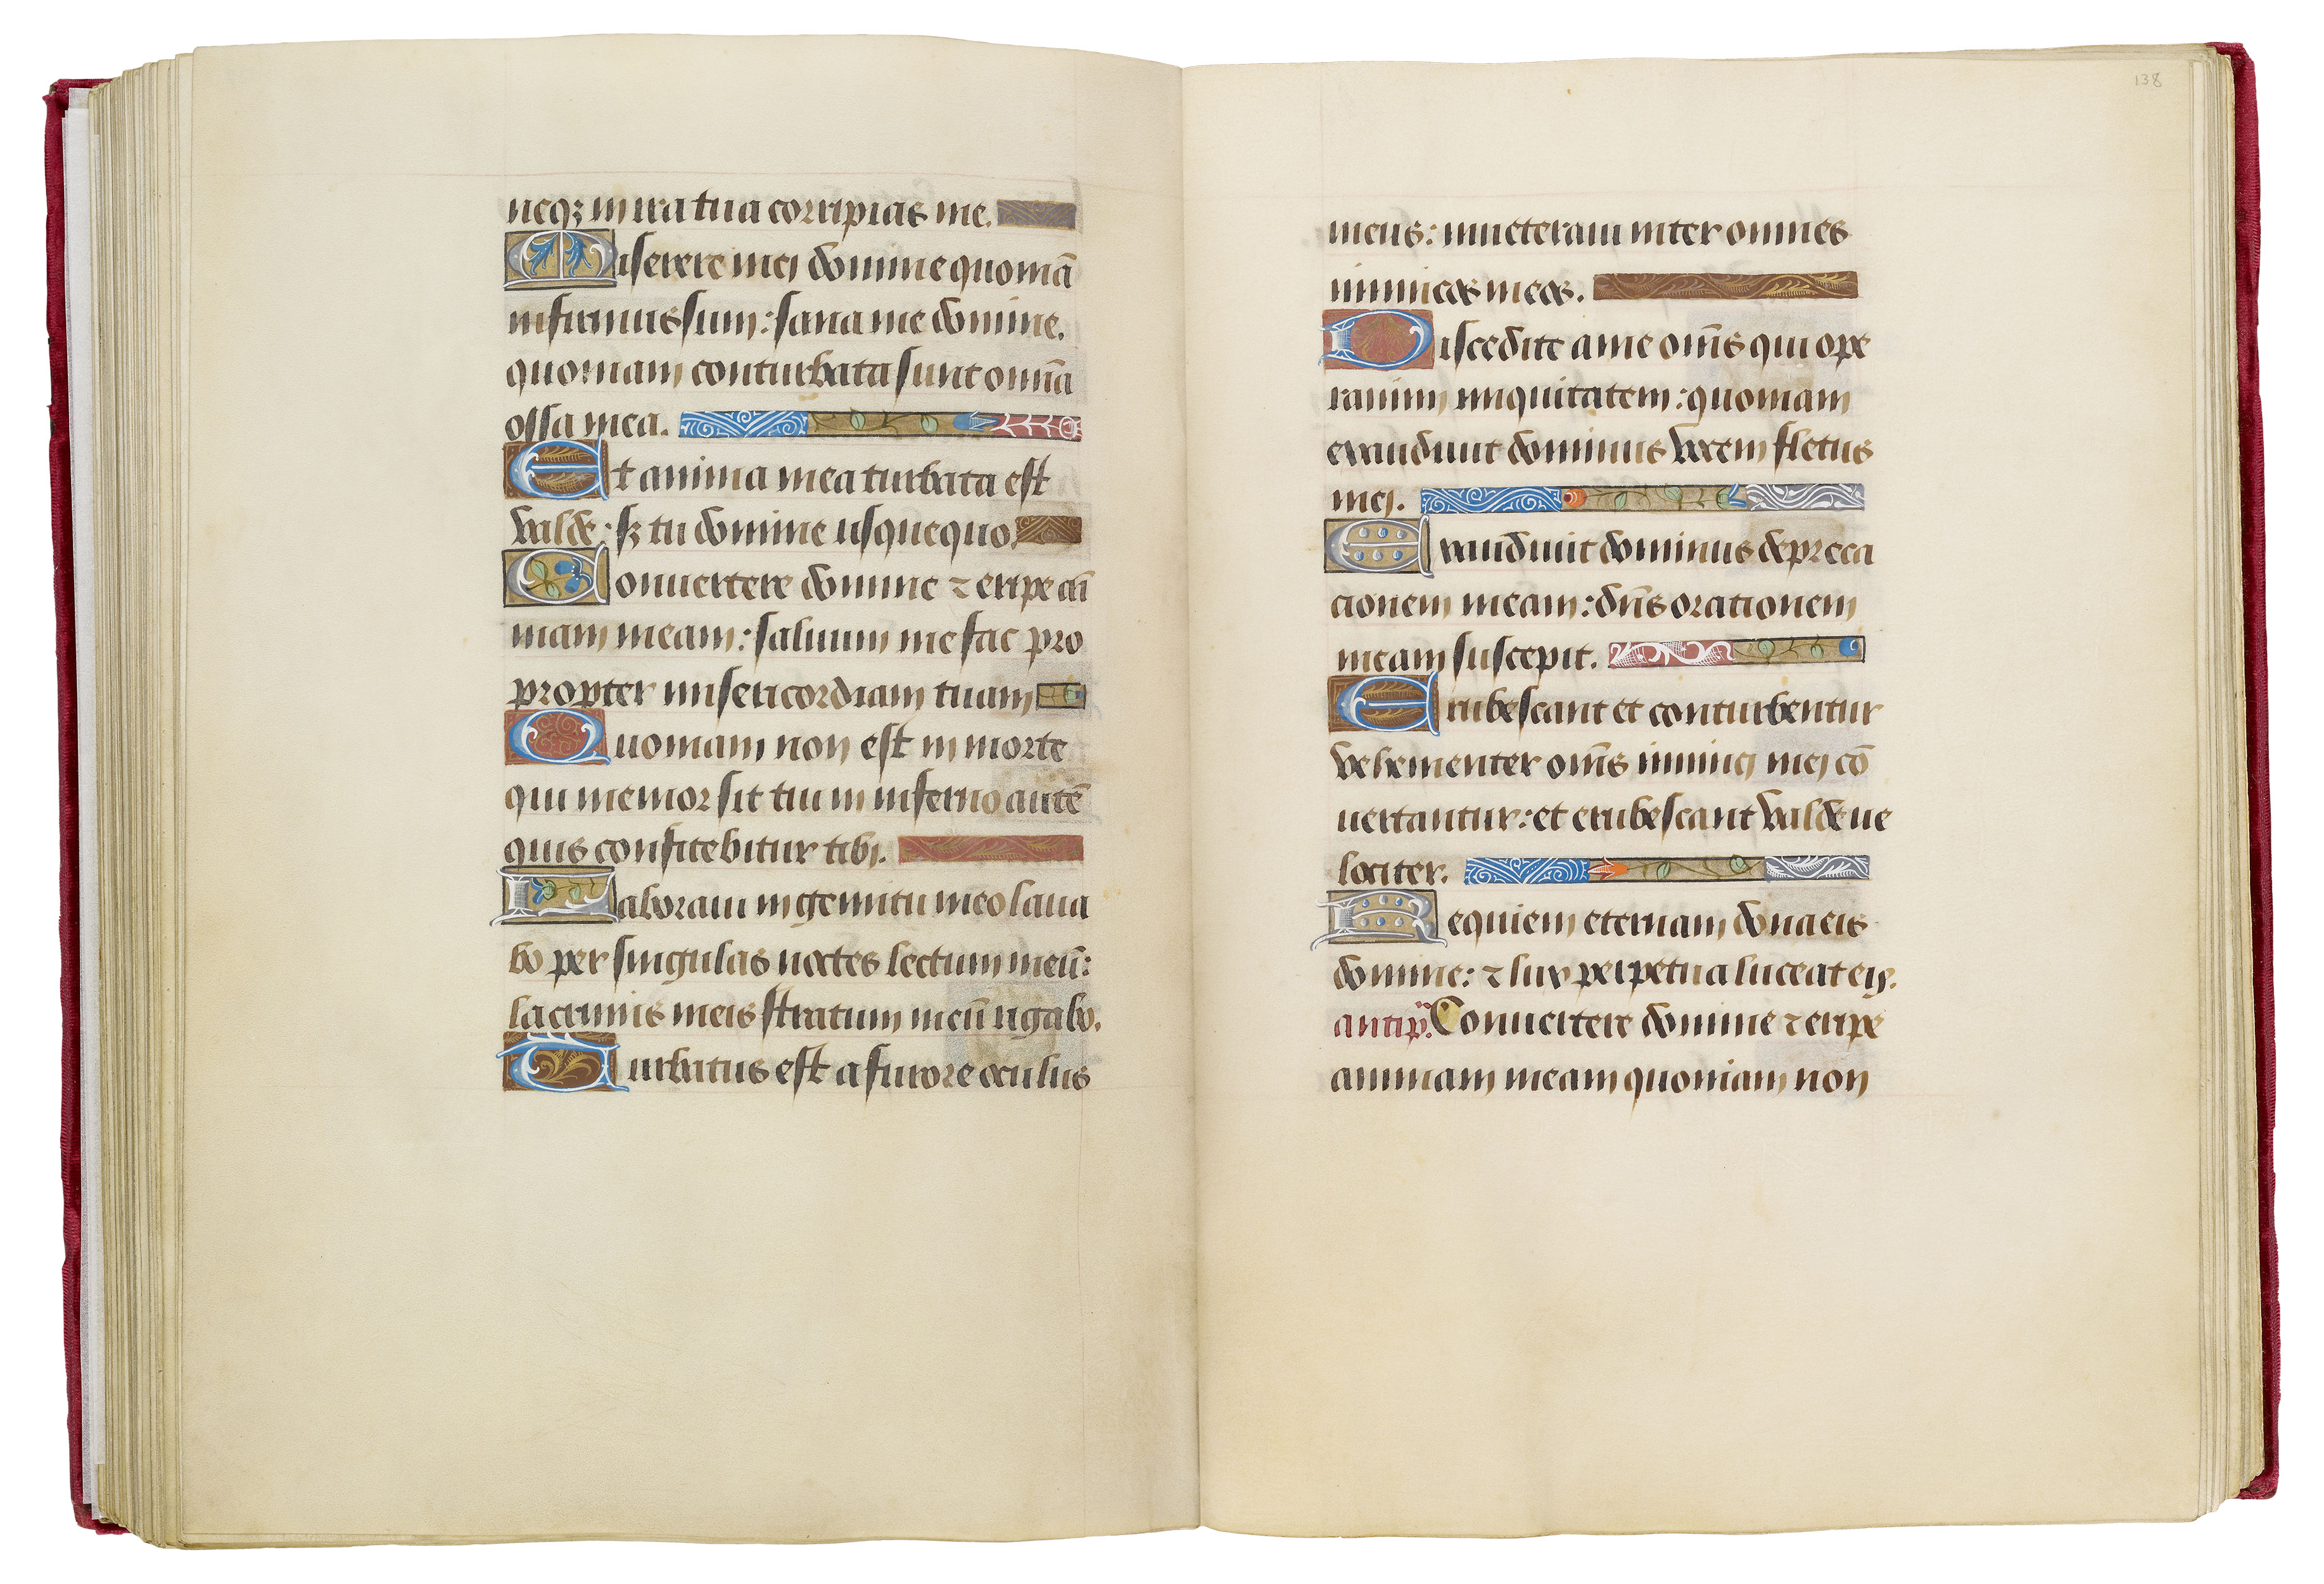 neqꝫ in ira tua corripias me.
Miserere mei domine quoniā
infirmus sum: sana me domine.
quoniam conturbata sunt omīa
ossa mea.
Et anima mea turbata est
valde: sꝫ tu domine usquequo.
Conuertere domine ⁊ eripe aī
mam meam: saluum me fac pro
propter misericordiam tuam
Quoniam non est in morte
qui memor sit tui in inferno autē
quis confitebitur tibi.
Laboraui in gemitu meo laua
bo per singulas noctes lectum meū:
lacrimis meis stratum meū rigabo.
Turbatus est a furore oculus
138
meus: inueteraui inter omnes
inimicos meos.
Discedite a me om̄s qui ope
ramini iniquitatem: quoniam
exaudiuit dominus vocem fletus
mei.
Exaudiuit dominus depreca
cionem meam: dn̄s orationem
meam suscepit.
Erubescant et conturbentur
vehementer om̄s inimici mei cō
uertantur: et erubescant valde ue
lociter.
Requiem eternam dona eis
domine: ⁊ lux perpetua luceat eis.
antip̄. Conuertere domine ⁊ eripe
animam meam quoniam non